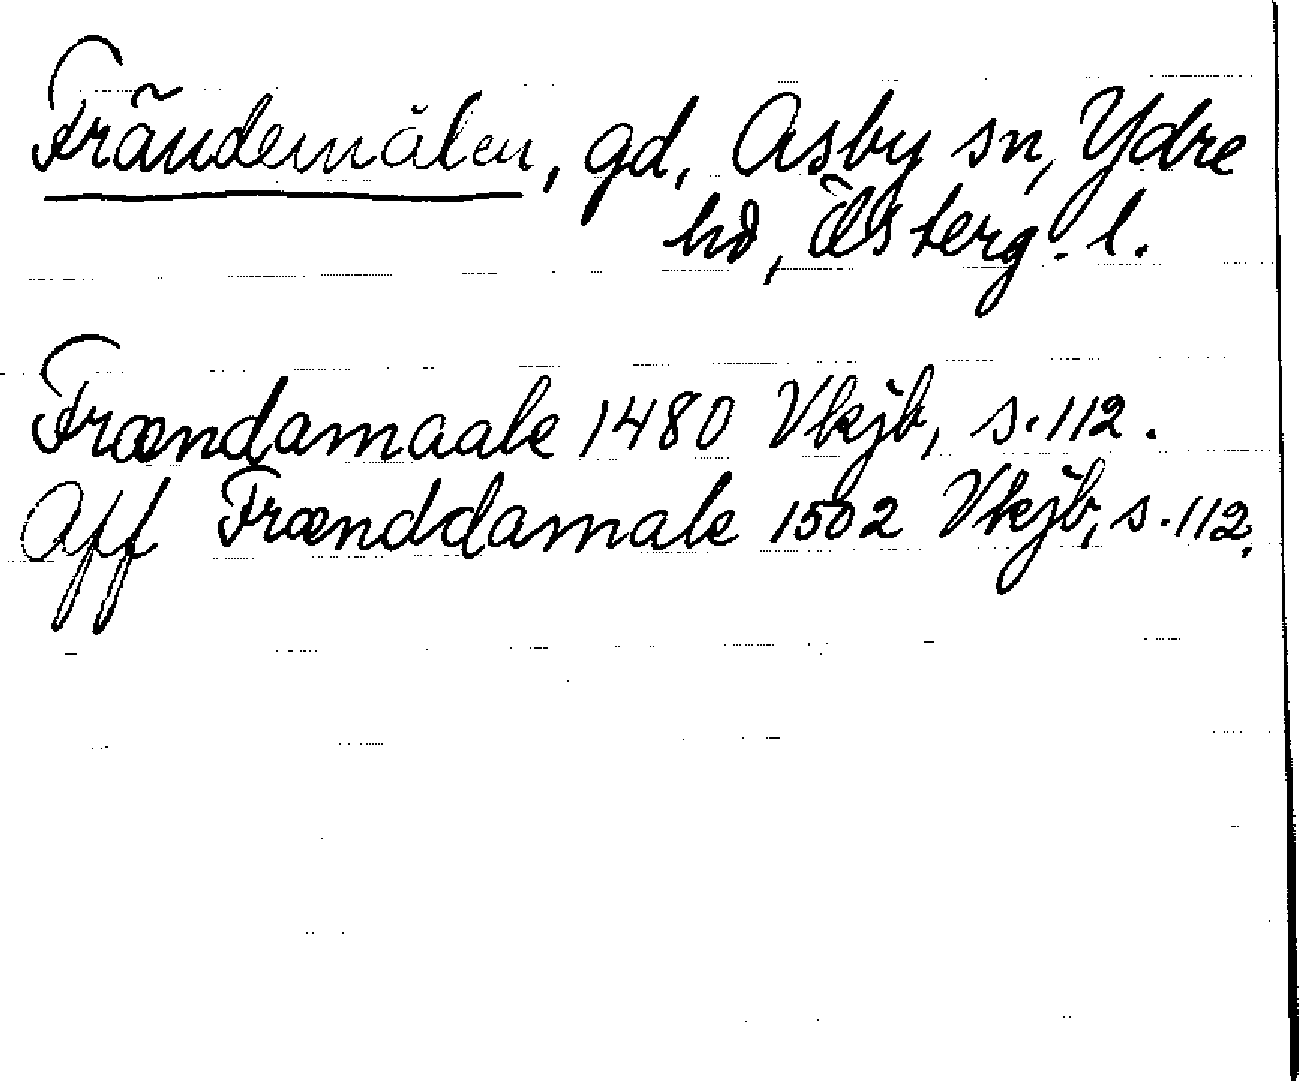 Frändemålen, gd, Asby sn, Ydre
hd, Österg. l.
Frændamaale 1480 Vkjb, s. 112.
Aff Frænddamale 1502 Vkjb, s. 112.